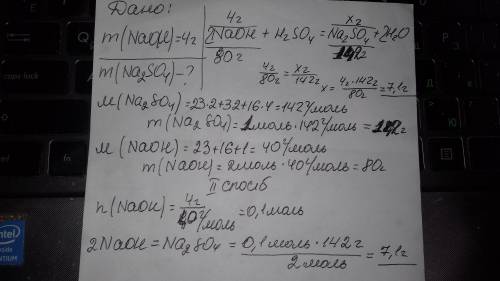 Дано:
m(NaOH)=4г
m(Na2SO4)-?
4г x г
2NaOH + H2SO4 = Na2SO4 + 2H2O
80г 142г
4г/80г = xг/142г x = 4г·142г/80г = 7,1г
M(Na2SO4)=23·2+32+16·4=142г/моль
m(Na2SO4)=1моль·142г/моль=142г
M(NaOH)=23+16+1=40г/моль
m(NaOH)=2моль·40г/моль=80г
II спосіб
n(NaOH)=4г/40г/моль=0,1моль
2NaOH=Na2SO4=0,1моль·142г/2моль=7,1г
intel
inside
PENTIUM